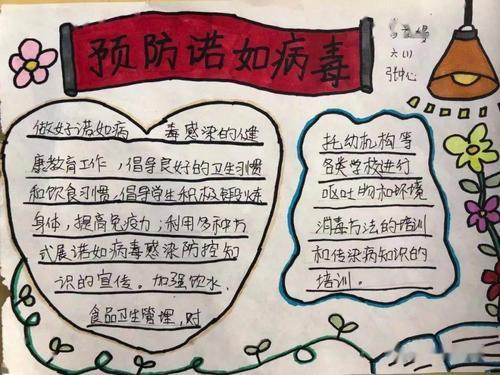 预防诺如病毒
六(1)
做好诺如病 毒感染的健
康教育工作,倡导良好的卫生习惯
和饮食习惯,倡导学生积极锻炼
身体,提高免疫力;利用多种方
式展诺如病毒感染防控知
识的宣传。加强饮水,
食品卫生管理,对
托幼机构等
各类学校进行
呕吐物和环境
消毒方法的培训
和传染病知识的
培训。